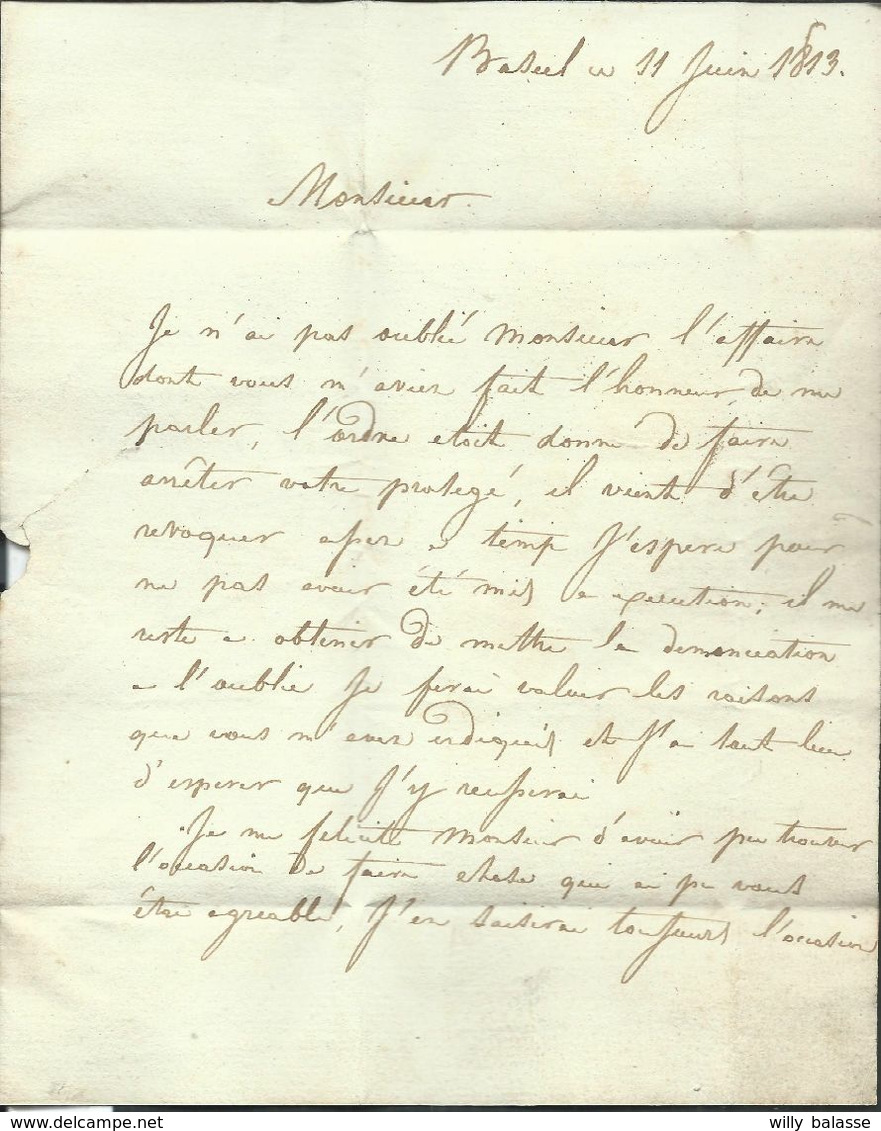 Baseel ce 11 Juin 1813.
Monsieur.
Je n'ai pas oublié Monsieur l'affaire
dont vous m'aviez fait l'honneur de me
parler, l'ordre etoit donné de faire
arrêter votre protegé, il vient d'être
revoquer assez a temp J'espere pour
ne pas avoir été mis a execution; il me
reste a obtenir de mettre la denonciation
a l'oublie Je ferai valoir les raisons
que vous m'avez indiqués et J'ai tout lieu
d'esperer que J'y reussirai
Je me felicite Monsieur d'avoir pu trouver
l'occasion de faire chose qui ai pu vous
être agreable, J'en saisirai toujours l'occasion
willy balasse